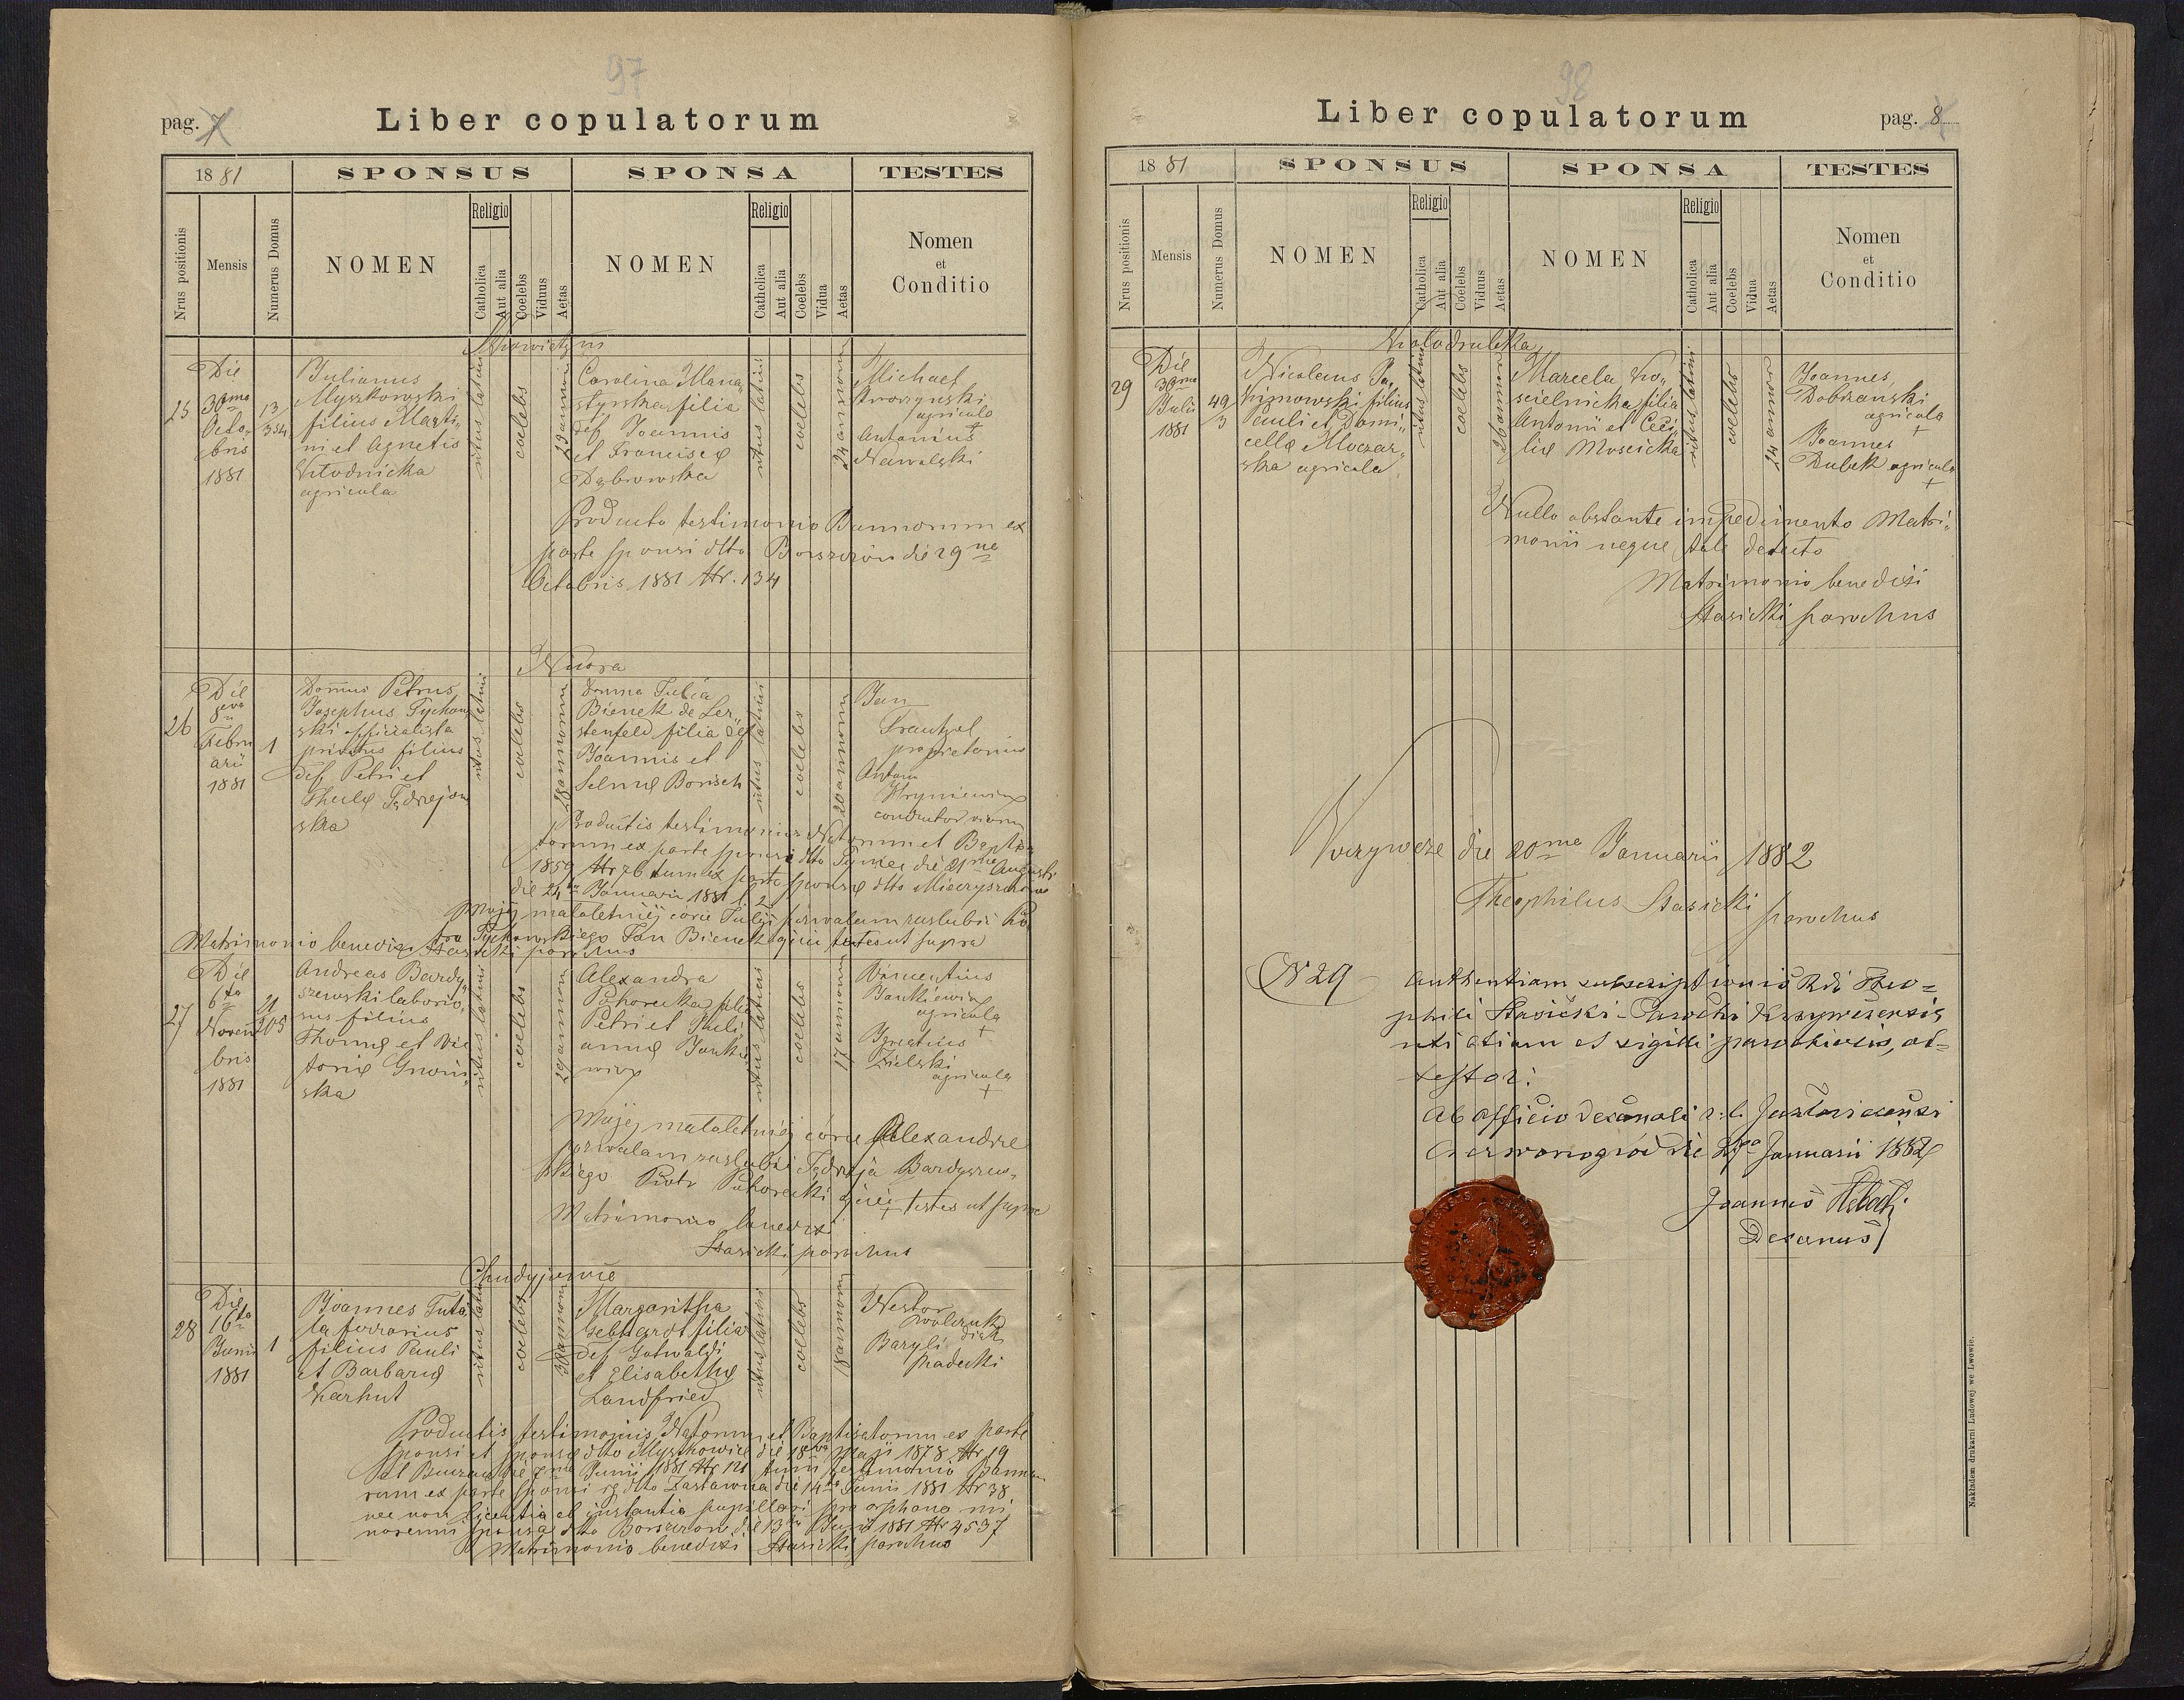 97
pag. 7
Liber copulatorum
1881
SPONSUS
SPONSA
TESTES
Nrus positionis
Mensis
Numerus Domus
NOMEN
Religio
Catholica
Aut alia
Coelebs
Viduus
Aetas
NOMEN
Religio
Catholica
Aut alia
Coelebs
Vidua
Aetas
Nomen
et
Conditio
25
Die
30ma
Octo„
bris
1881
13
354
Julianus
Myszkowski
filius Marti„
ni et Agnetis
agricola
ritus latini
coelebs
29 annorum
Carolina Mana„
styrska filia
def Joannis
et Francisc
Dąbrowska
ritus latini
coelebs
24 annorum
Michael
agricola
+
Antonius
Nawalski
Producto testimonio Bannorum ex
parte sponsi dtto Borszczów die 29na
Octobris 1881 Nr. 134
Niwra
26
Die
8va
Febru
arii
1881
1
Domnus Petrus
Josephus Tychow
ski officialista
privatus filius
def Petri et
Theclę Jędrzejow
ska
ritus latini
coelebs
28 annorum
Domna Julia
Bienek de Ler„
stenfeld filia def
Joannis et
Selmę Borisch
ritus latini
coelebs
20 annorum
Jan
Frautzel
proprietarius
Antoni
Hryniewicz
conductor viarum
Productis testimoniis Natorum et Baptiza
torum ex parte sponsi dto Tyniec die 21ma Augusti
1859 Nr 76 tum ex parte sponsę dtto
die 24ta Januarii 1881 l. 2
Mojej małoletniej córce Julij pozwalam zaslubić Pio
tra Tychowskiego Jan Bienek ojciec testes ut supra
Matrimonio benedixi Stasicki parochus
27
Die
6ta
Novem
bris
1881
21
205
Andreas Bardy„
szewski laborio„
sus filius
Thomę et Vic
torię Gnoiń„
ska
ritus latini
coelebs
29 annorum
Alexandra
Pohorecka filia
Petri et Juli
annę Jankie
wicz
ritus latini
coelebs
17 annorum
Vincentius
Jankiewicz
agricola
+
Ignatius
Zielski
agricola
+
Mojej małoletniej córce Alexandrze
pozwalam zaslubić Jędrzeja Bardyszew„
skiego Piotr Pohorecki ojciec + testes ut supra
Matrimonio benedixi
Stasicki parochus
Chudyjowce
28
Die
16ta
Junii
1881
1
Joannes Tuta
la ferrarius
filius Pauli
et Barbarę
Karhut
ritus latini
coelebs
30 annorum
Margaritha
Gebhardt filia
def Gotwaldi
et Elisabethę
Landfried
ritus latini
coelebs
18 annorum
Nestor
Wolczuk
diak
Baryli
Madecki
Productis testimoniis Natorum et Baptisatorum ex parte
sponsi et sponsę dto Myszkowice die 18va Maji 1878 Nr 19
Junii 1881 Nr 121 tum testimonio Banno
rum ex parte sponsi rg dtto Zastawna die 14ta Junii 1881 Nr 38
nec non licentia ab instantia pupillari pro orphana mi
norenni sponsa dto Borszczow die 13tia Junii 1881 Nr 4537
Matrimonio benedixi Stasicki parochus
98
Liber copulatorum
pag. 8
1881
SPONSUS
SPONSA
TESTES
Nrus positionis
Mensis
Numerus Domus
NOMEN
Religio
Catholica
Aut alia
Coelebs
Viduus
Aetas
NOMEN
Religio
Catholica
Aut alia
Coelebs
Vidua
Aetas
Nomen
et
Conditio
Wolodrubka
29
Die
30ma
Julii
1881
49
3
Nicolaus Ja„
kimowski filius
Pauli et Domi„
cellę Moczar„
ska agricola
ritus latini
coelebs
26 annorum
Marcela Ko„
scielnicka filia
Antonii et Ceci„
lię Moscicka
ritus latini
coelebs
24 annorum
Joannes
Dobrzanski
agricola
+
Joannes
Dubek agricola
+
Nullo obstante impedimento Matri„
monii neque tale detecto
Matrimonio benedixi
Stasicki parochus
Krzywcze die 20ma Januarii 1882
Theophilus Stasicki parochus
N 29
Authentiam subscriptionis Rdi Theo=
phili Stasicki Parochi Krzywcensis
uti etiam et sigilli parochialis, at=
testor.
Ab officio decanali r. l. Jazloviecensi
Czerwonogród die Januarii 1882
Joannes
Decanus
Nakładem drukarni Ludowej we Lwowie.